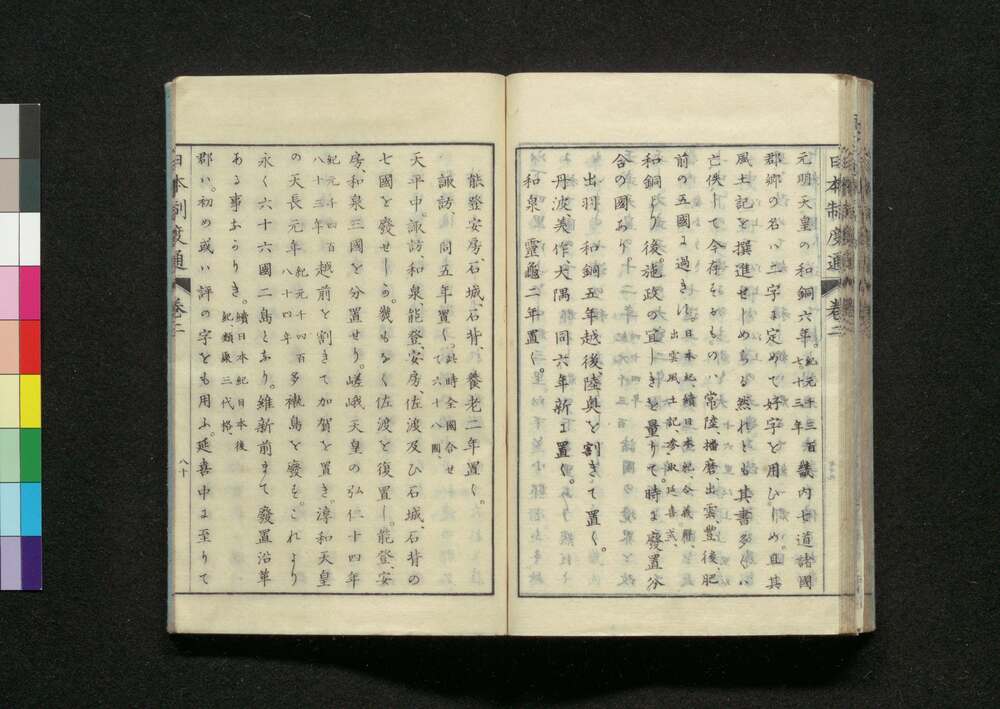 元明天皇の和銅六年。紀元千三百七十三年畿内七道諸國
郡郷の名ハ二字ま定めて好字を用ひしめ且其
風土記を撰進せしめらる然れとも其書多くハ
亡佚して今存するものハ常陸播磨、出雲、豊後、肥
前の五國に過きす。日本紀、續日本紀、令義解、出雲風土記、延喜式、
和銅より後。施政の宜しきを量りて。時に廢置分
合の國あり。
出羽、和銅五年越後、陸奥を割きて置く。
丹波、美作、大隅、同六年新に置く。
和泉、靈龜二年置く。
能登、安房、石城、石背、養老二年置く。
諏訪、同五年置く。此時全國合せて六十八國、
天平中。諏訪、和泉、能登、安房、佐渡及ひ石城、石背の
七國を廢せしか。幾もなく佐渡を復置し。能登、安
房、和泉三國を分置せり。嵯峨天皇の弘仁十四年
紀元千四百八十三年越前を割きて加賀を置き。淳和天皇
の天長元年紀元千四百八十四年多褹島を廢す。これより
永く六十六國二島となり。維新前まて廢置沿革
ある事なかりき。續日本紀、日本後紀、類聚三代格、
郡ハ。初め或ハ評の字をも用ふ。延喜中に至りて
日本制度通
卷二
八十